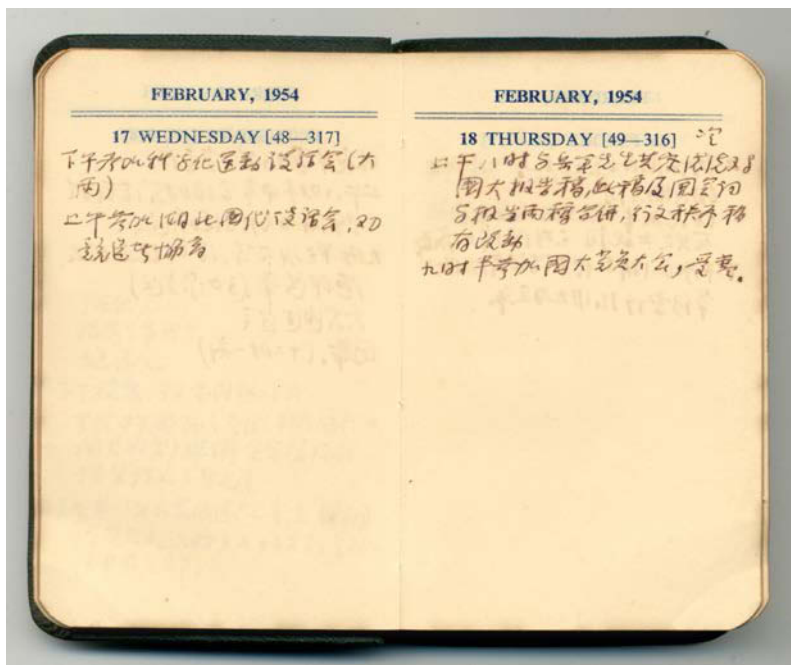 FEBRUARY, 1954
17 WEDNESDAY [48—317]
下午参加科学化运动谈话会(大
雨)
上午参加湖北国代谈话会,对
竞选
FEBRUARY, 1954
18 THURSDAY [49—316]
上午八时与岳军先生共
国大报告稿,此稿及
与报告两稿合併,行文秩序稍
有改动
九时半参加国大党员大会,